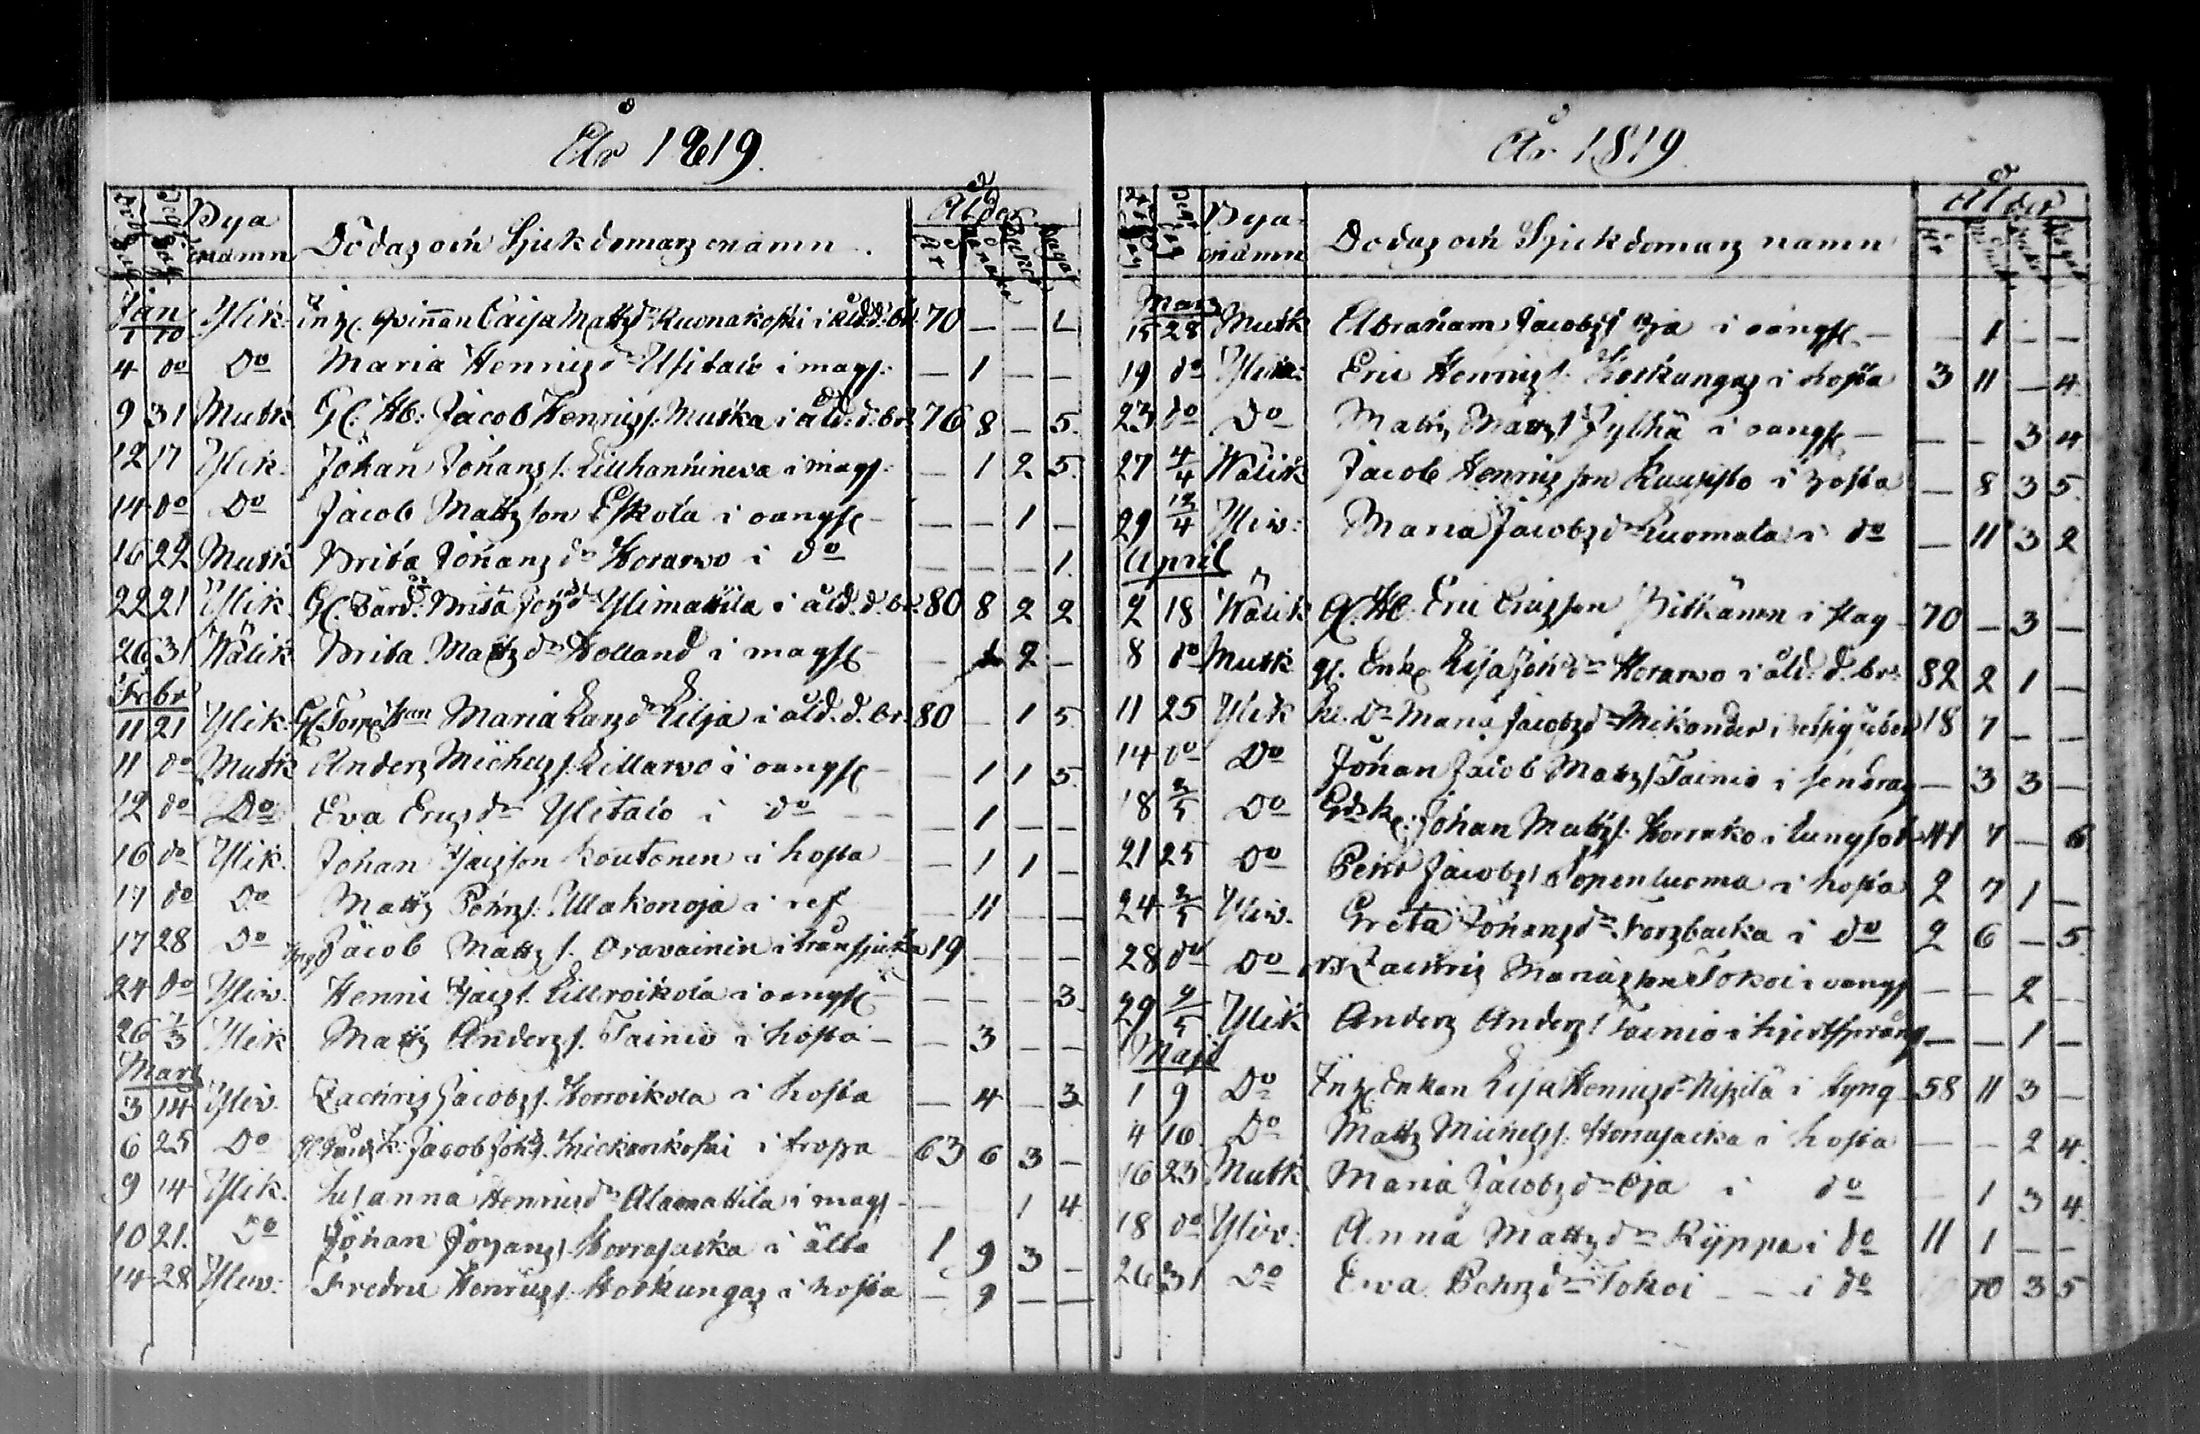 År 1819.
Död dag Begr. dag Bya namn Dödas och Sjukdomars namn Ålder
År Månader Veckor Dagar
Jan:
1 10 Ylik. Inh. qvinnan Caisa Mattsdr Ruonakoski i åld. d. br. 70 — — 1
4 do Do Maria Henricsdr Ylitalo i mags: — 1 — —
9 31 Mutk Gl. Hb: Jacob Henricss. Mutka i åld. d. br. 76 8 — 5.
12 17 Ylik. Johan Johanss. Lillhannineva i mags. — 1 2 5.
14 do Do Jacob Mattsson Eskola i oangif — — 1 —
16 22 Mutk Brita Johansdr Korarvo i do — — — 1.
22 21 Ylik. Gl. Brita Johdr Ylimattila i åld. d. br. 80 8 2 2.
26 31 Wälik Brita Mattsdr Holland i magsj — 1 2 —
Febr
11 21 Ylik. Gl. Maria Larsdr Lilja i åld. d. br. 80 — 1 5.
11 do Mutk Anders Michelss. Lillarvo i oangif — 1 1 5.
12 do Do Eva Ericsdr Ylitalo i do — 1 — —
16 do Ylik. Johan Isacsson Koutonen i hosta — 1 1 —
17 do Do Matts Pehrs. Ullakonoja i ref — 11 — —
17 28 Do Jacob Matts s. Oravainen i transjuka 19 — — —
24 do Yliv. Henric Isacs s. Lillroikola i oangif — — — 3.
26 7/3 Ylik Matts Anderss. Tainio i hosta — 3 — —
Mars
3 14 Yliv. Zachris Jacobss. Korroikola i hosta — 4 — 3
6 25 Do Jacob Johs. Knickarikoski i 63 6 3 —
9 14 Ylik. Susanna Henricsdr Alamattila i mags — — 1 4
10 21. Do Johan Johanss. Korrasacka i älta 1 9 3 —
14 28 Yliv: Fredric Henricss. Kotkangas i hosta — 9 — —
År 1819.
Död dag Begr. dag Bya namn Dödas och Sjukdomars namn Ålder
Mars
15 28 Mutk Abraham Jacobss Oja i oangif — 1 — —
19 do Yliv: Eric Henricss. Kotkangas i hosta 3 11 — 4.
23 do Do Matts Mattss Jylhä i oangif — — 3 4
27 4/4 Wälik Jacob Henricsson Kuusisto i hosta — 8 3 5.
29 12/4 Yliv: Maria Jacobsdr Luomala i do — 11 3 2
April
2 18 Wälik Gl. Hb. Eric Ericsson Pitkänen i slag 70 — 3 —
8 do Mutk gl. Enk. Lisa Johdr Korarvo i åld. d. br: 82 2 1 —
11 25 Ylik Maria Jacobsdr Mikonder i 18 7 — —
14 do Do Johan Jacob Mattss Tainio i — 3 3 —
18 2/5 Do Johan Mattss. Korrako i lungsot 41 7 — 6
21 25 Do Petter Jacobss Sopenluoma i hosta 2 7 1 —
24 2/5 Yliv. Greta Johansdr Forsbacka i do 2 6 — 5.
28 do Do Zachris Mariasson Tokoi i oangf — — 2 —
29 9/5 Ylik Anders Anderss Tainio i hjertsprång — — 1 —
Maji
1 9 Do Inh. Enkan Lisa Henricsdr Nisula i tyng 58 11 3 —
4 16 Do Matts Michelss. Korrasacka i hosta — — 2 4.
16 23 Mutk Maria Jacobsdr Oja i do — 1 3 4.
18 do Yliv: Anna Mattsdr Ryppa i do 11 1 — —
26 31 Do Eva Pehrsdr Tokoi — i do 10 3 5